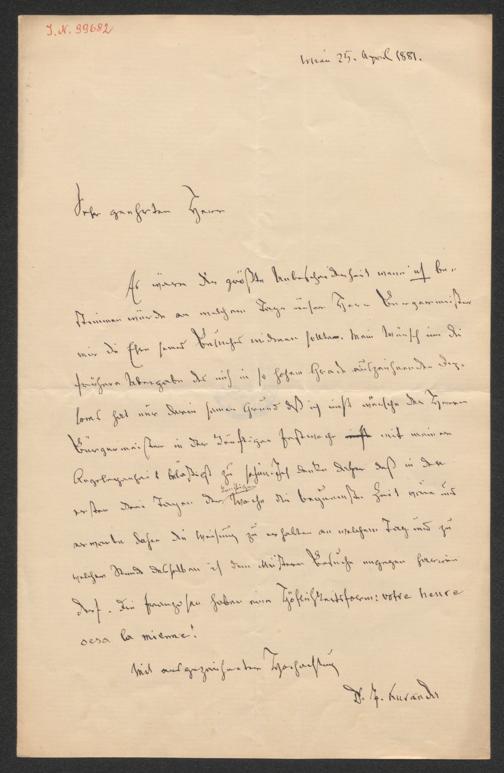 J. N. 99682
Wien 25. April 1881.
Sehr geehrter Herr
Es wäre die größte Unbescheidenheit wenn ich be-
stimmen würde an welchem Tage unser Herr Bürgermeister
mir die Ehre seines Besuches widmen sollte. Mein Wunsch um die
frühere Übergabe des mich in so hohem Grade auszeichnenden Dip-
loms hat nur darin seinen Grund daß ich nicht wünsche den Herrn
Bürgermeister in der künftigen mit meiner
Angelegenheit zu denke daher daß in den
ersten drei Tagen der Woche die bequemste Zeit wäre und
erwarte daher die Weisung zu erhalten an welchem Tag und zu
welcher Stunde desselben ich dem Besuche entgegen
darf. Die Franzosen haben eine Höflichkeitsform: votre heure
sera la mienne!
Mit ausgezeichneter Hochachtung
Dr. Kuranda